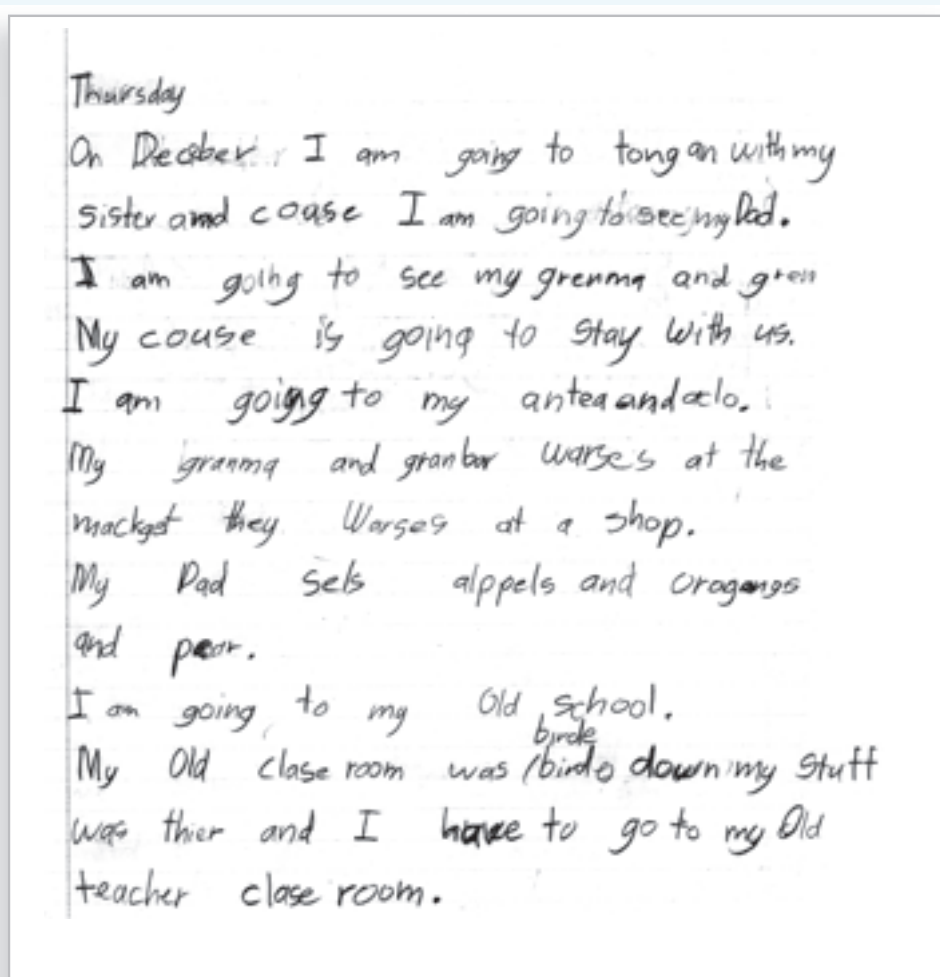 Thursday
On Decober I am going to tongan with my
sister and coase I am going to see my Dad.
I am going to see my grenma and gren
My couse is going to Stay With us.
I am going to my antea and aclo.
My granma and granbar warses at the
mackget they Warses at a shop.
My Dad sels alppels and orogangs
and pear.
I am going to my Old school.
birde
My Old clase room was birde down my Stuff
was thier and I have to go to my Old
teacher clase room.